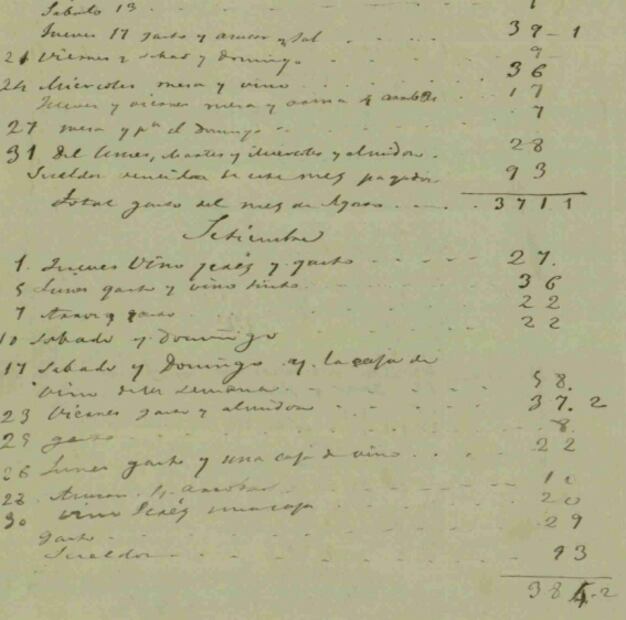 Sabado 13
Jueves 17 gasto y azucar y sal 39-1
21 Viernes y Sabado y Domingo 9
24 Miercoles mesa y vino 36
Jueves y viernes mesa y 4 arrobas 17
27 mesa y pa el Domingo 7
31 del Lunes, Martes y Miercoles y almidon. 28
Sueldos vencidos de este mes pagados 93
Total gasto del mes de Agosto 371 1
Setiembre
1. Jueves Vino Jerés y gasto 27.
5 Lunes gasto y vino tinto 36
7 Arroz y gasto 22
10 Sabado y Domingo 22
17 Sabado y Domingo y la caja de
vino de la semana 58.
23 Viernes gasto y almidon 37. 2
25 gasto 8.
26 Lunes gasto y una caja de vino 22
28 4 arrobas 10
30 Vino Jeréz una caja 20
gasto 29
Sueldos 93
384.2